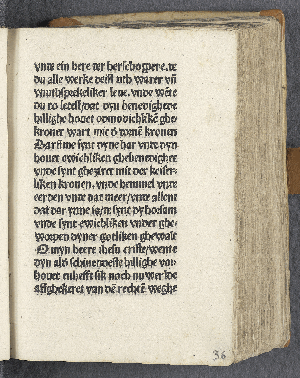 vnte ein here ter herschoppere, te
du alle werke deist vth warer vñ
vnuthsprekeliker leue, vnde wẽre
du ro letest, dat dyn benedighete
hillighe houet odmodichlikẽ ghe
kronet wart mit ẽ kronen
Darũme synt dyne har vnte dyn
houet ewichliken ghebenedighet
vnde synt gheziret mit der keiser-
liken kronen, vnde hemmel vnte
eer den vnte dat meer, vnte allent
dat dar ynne is, te synt dy hosam
vnde synt ewichliken vnder ghe
worpen dyner gotliken ghewalt
O myn heere ihesu criste, wente
dyn als schinendeste hillighe vor-
houet enheft sik noch nu werlde
affghekeret van dẽ rechtẽ weghe
36